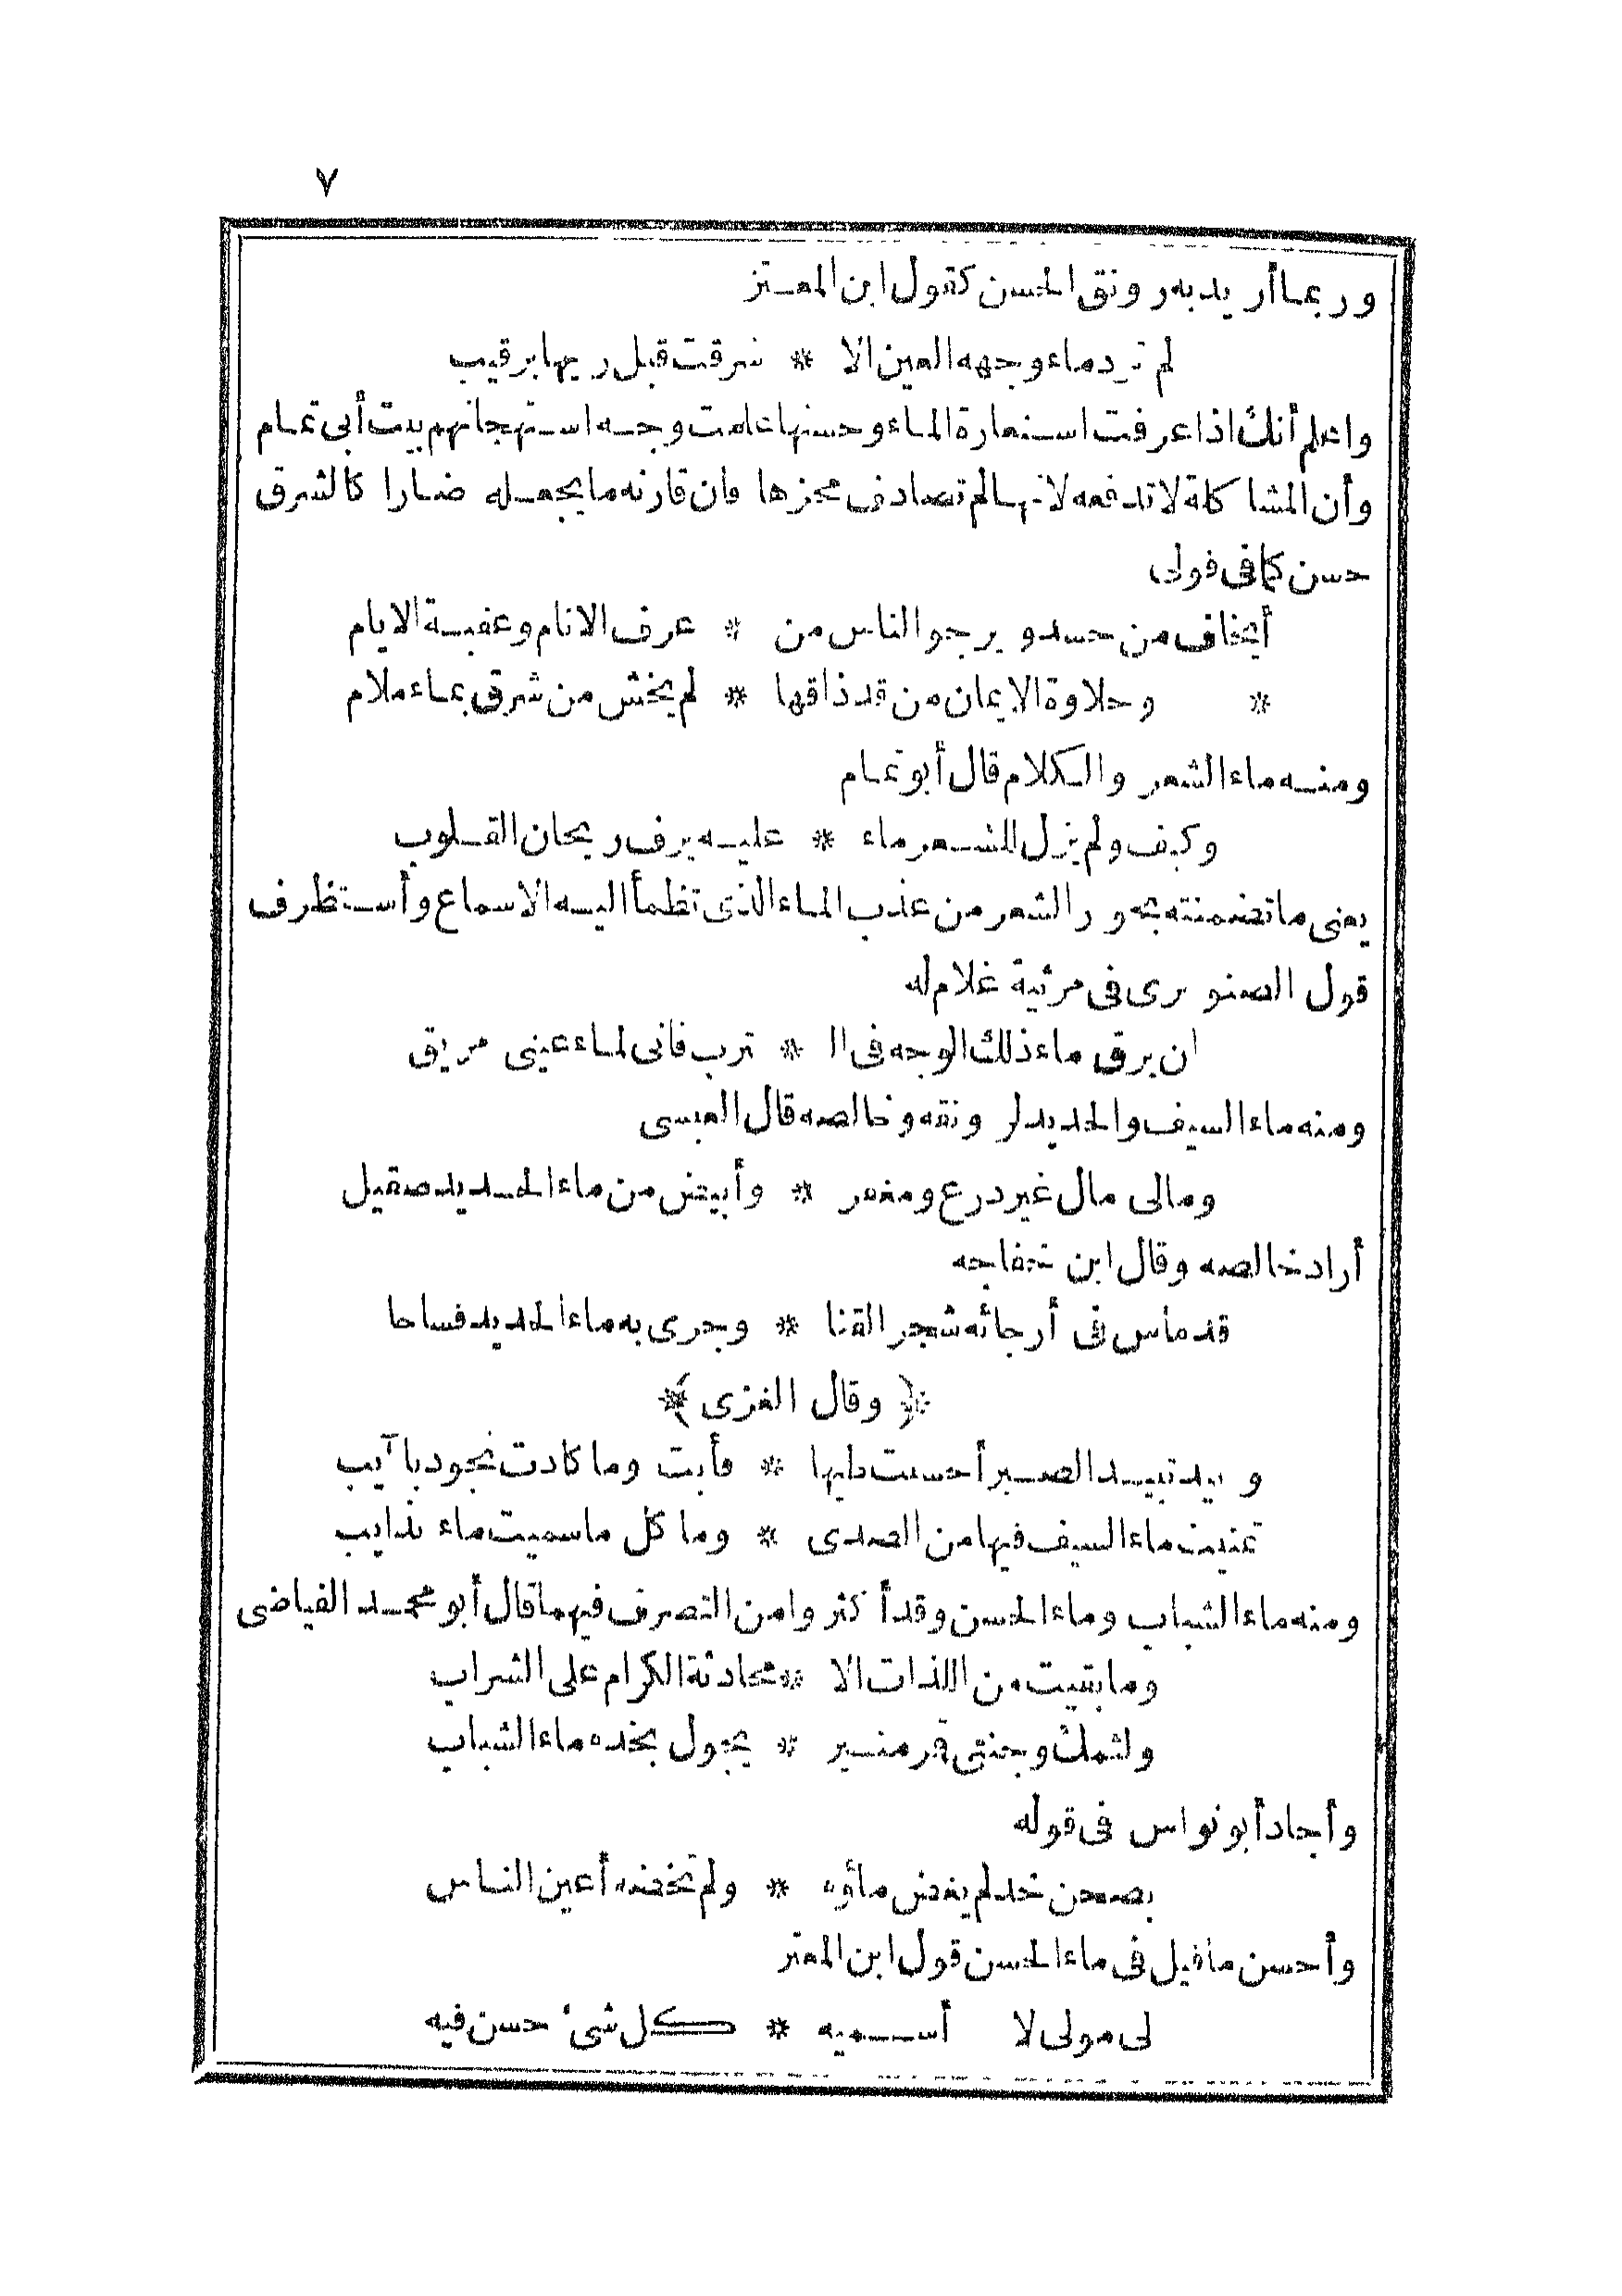 ٧
وربما أريد به رونق الحسن كقول ابن المعتز
لم ترد ماء وجهه العين الا * شرقت قبل ريها برقيب
واعلم أنك اذا عرفت استعارة الماء وحسنها علمت وجه استهجانهم بيت أبي تمام
وأن المشاكلة لا تدفعه لانها لم تصادف محزها وان قارنه ما يجعله ضارا كالشرق
حسن كما في قولي
أيخاف من حسد ويرجو الناس من * عرف الانام وعقبة الايام
* وحلاوة الايمان من قد ذاقها * لم يخش من شرق بماء ملام
ومنه ماء الشعر والكلام قال أبو تمام
وكيف ولم يزل للشعر ماء * عليه يرف ريحان القلوب
يعني ما تضمنته بحور الشعر من عذب الماء الذي تظمأ اليه الاسماع وأستظرف
قول الصنوبري في مرثية غلام له
ان يرق ماء ذلك الوجه في ال * ترب فاني لماء عيني مريق
ومنه ماء السيف والحديد لرونقه وخالصه قال العبسي
ومالي مال غير درع ومغفر * وأبيض من ماء الحديد صقيل
أراد خالصه وقال ابن خفاجه
قد ماس في أرجائه شجر القنا * وجرى به ماء الحديد فساحا
﴿ وقال الغزي ﴾
وبيد تبيد الصبر أحسنت طيها * فأبت وما كادت تجود بآيب
تمنيت ماء السيف فيها من الصدى * وما كل ما سميت ماء بذايب
ومنه ماء الشباب وماء الحسن وقد أكثروا من التصرف فيهما قال أبو محمد الفياضي
وما بقيت من اللذات الا * محادثة الكرام على الشراب
ولثمك وجنتي قمر منير * يجول بخده ماء الشباب
وأجاد أبو نواس في قوله
بصحن خد لم يغض ماؤه * ولم تخضه أعين الناس
وأحسن ما قيل في ماء الحسن قول ابن المعتز
لي مولى لا أسميه * كل شئ حسن فيه